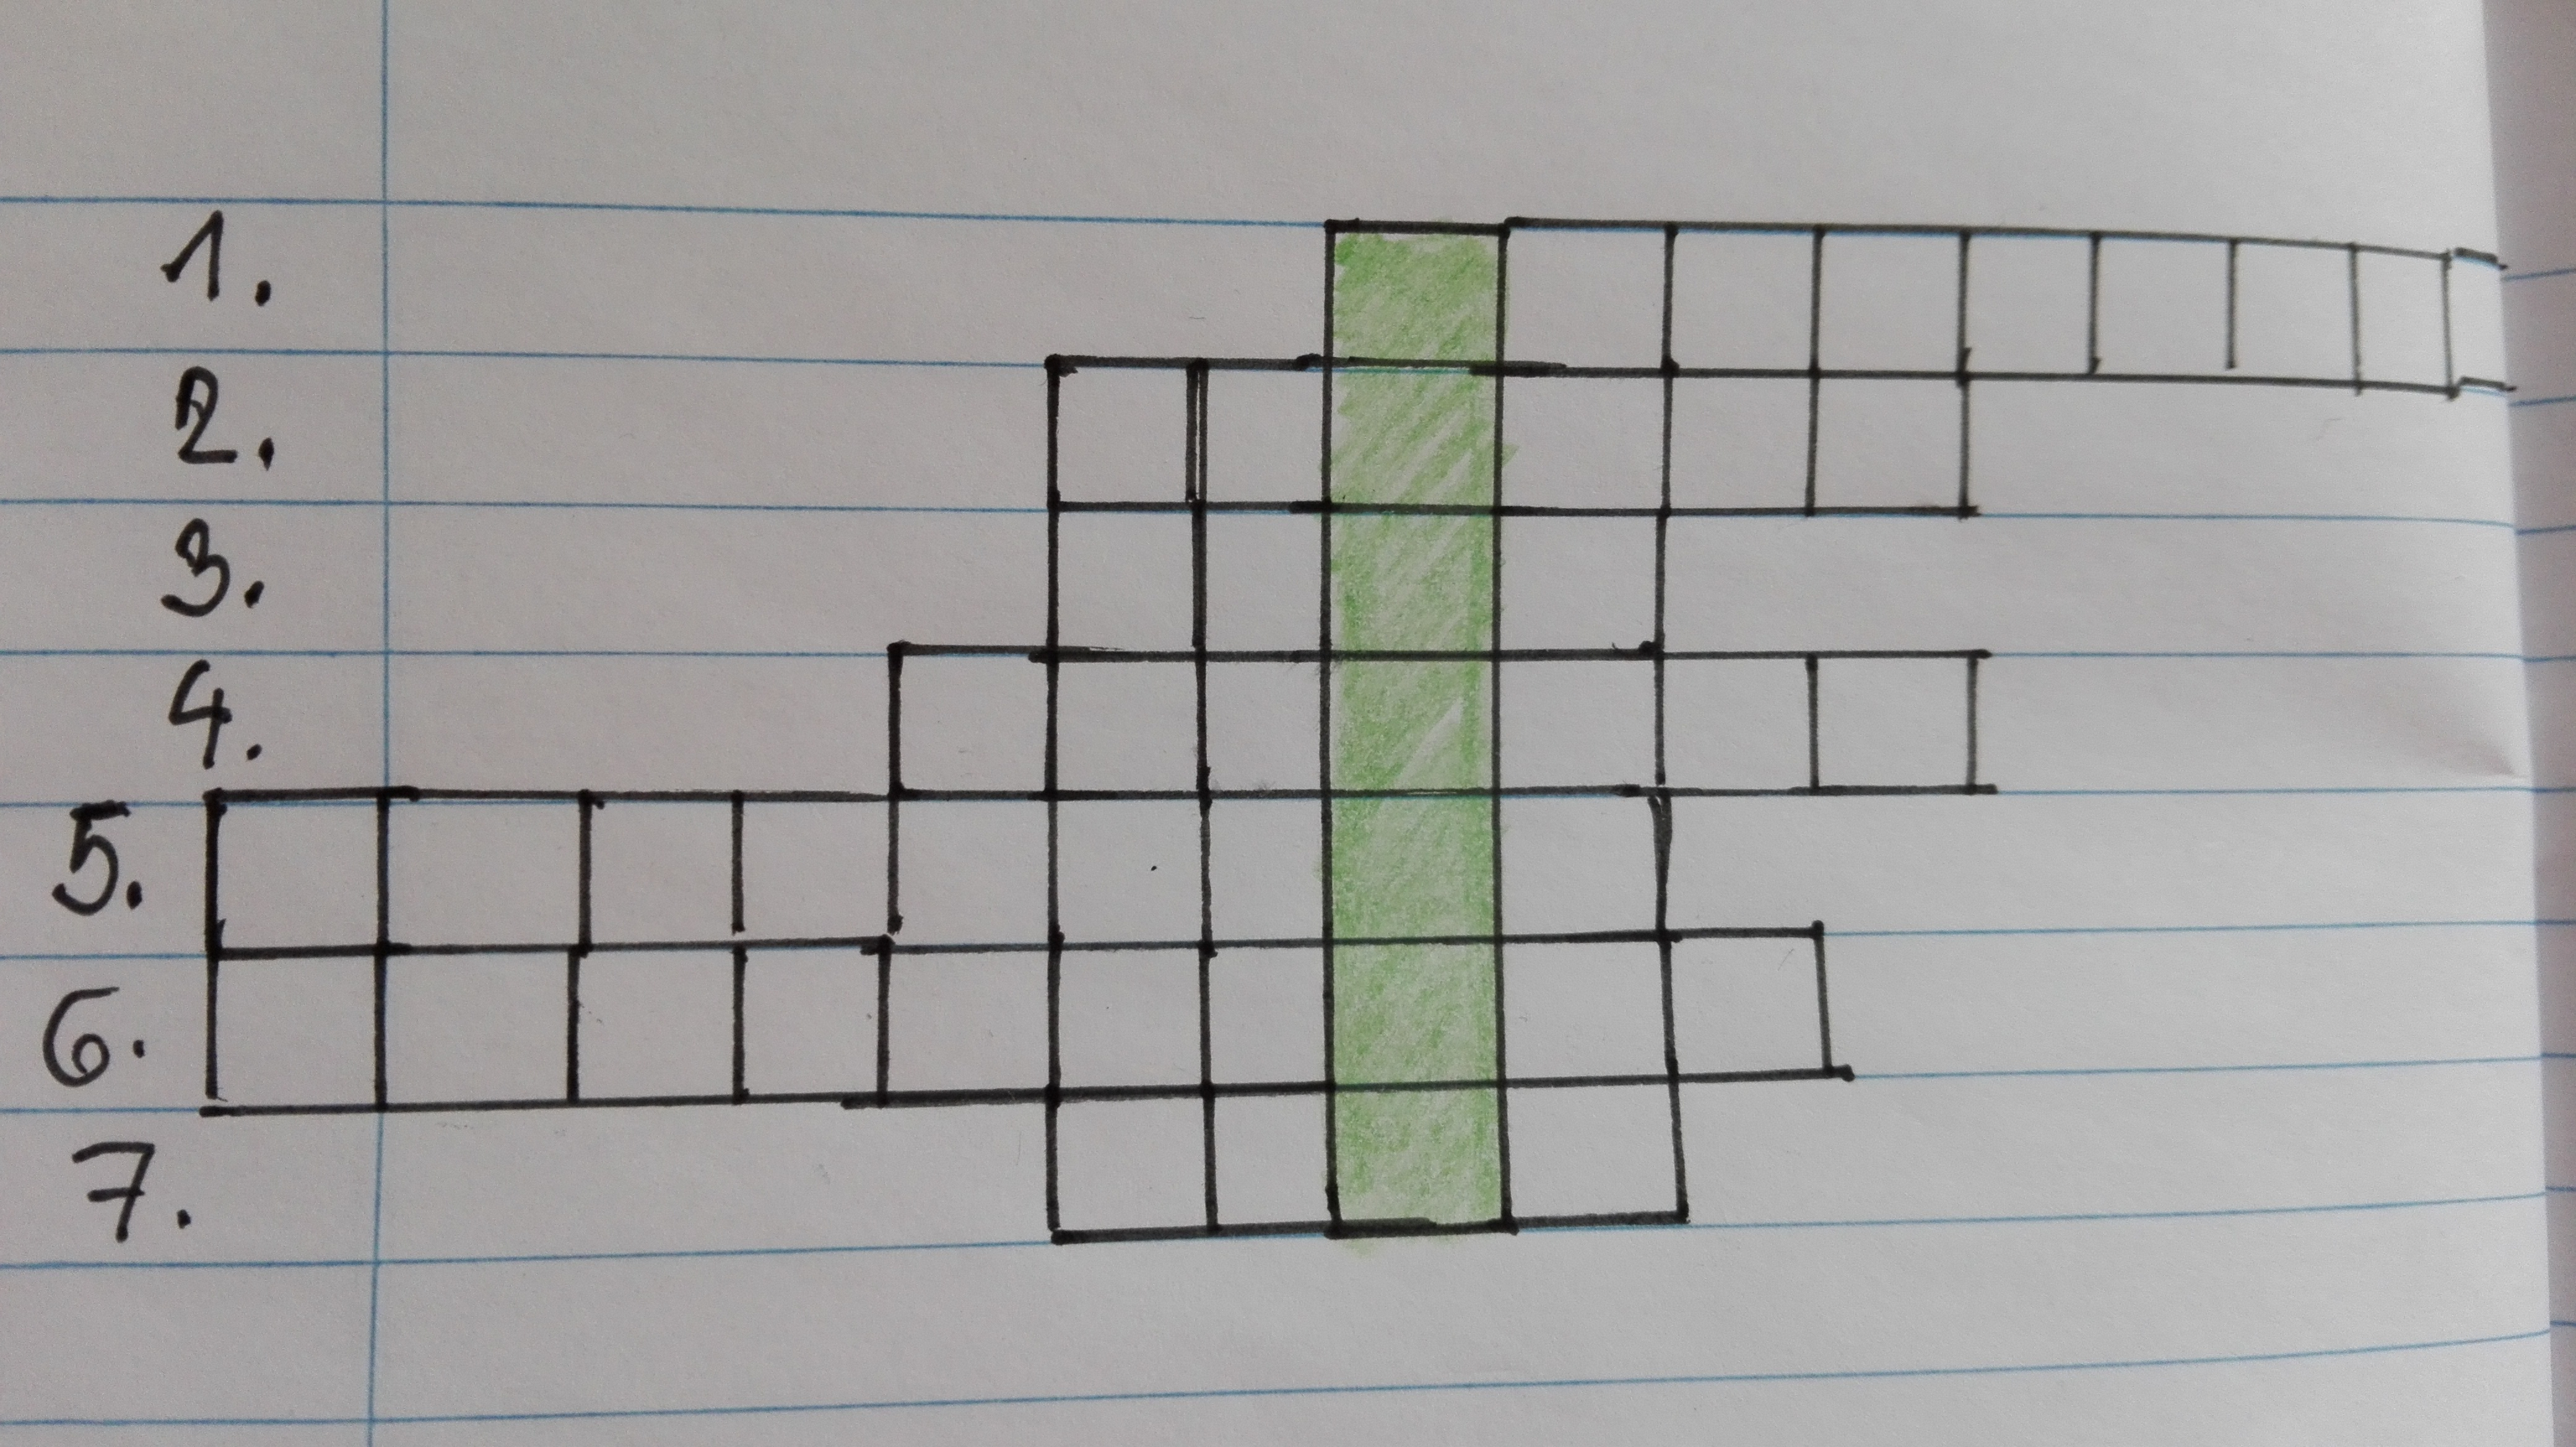 1.
2.
3.
4.
5.
6.
7.